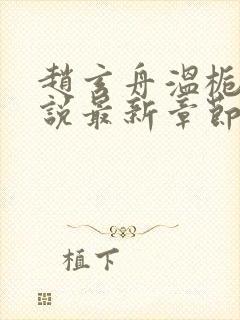 趙玄舟溫梔
說最新章節
植下